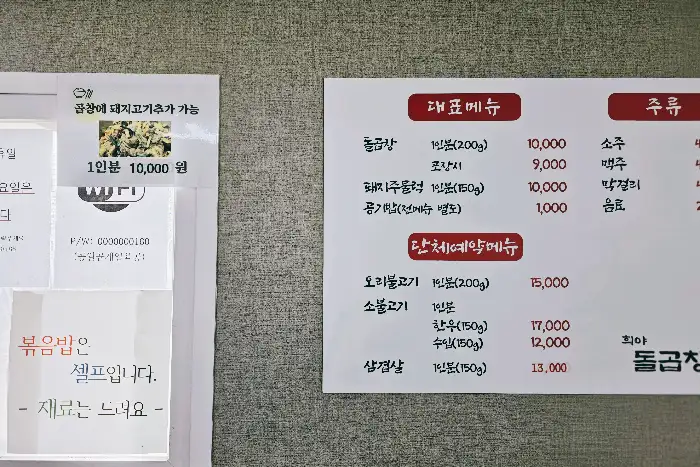 곱창에 돼지고기추가 가능
1인분 10,000 원
WiFi
P/W: 0000000160
볶음밥은
셀프입니다.
- 재료는 드려요 -
대표메뉴
돌곱창 1인분(200g) 10,000
포장시 9,000
돼지주물럭 1인분(150g) 10,000
공기밥(전메뉴 별도) 1,000
단체예약메뉴
오리불고기 1인분(200g) 15,000
소불고기 1인분
한우(150g) 17,000
수입(150g) 12,000
삼겹살 1인분(150g) 13,000
주류
소주
맥주
막걸리
음료
희야
돌곱창